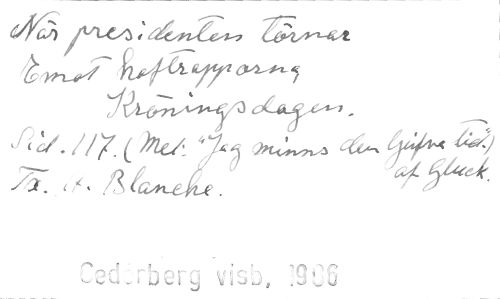 När presidenten törnar
Emot haftrapporna
Kröningsdagen.
Sid. 117. (Mel: "Jag minns den ljufva tid".)
af Gluck.
Tx. A. Blanche.
Cederberg visb, 1906